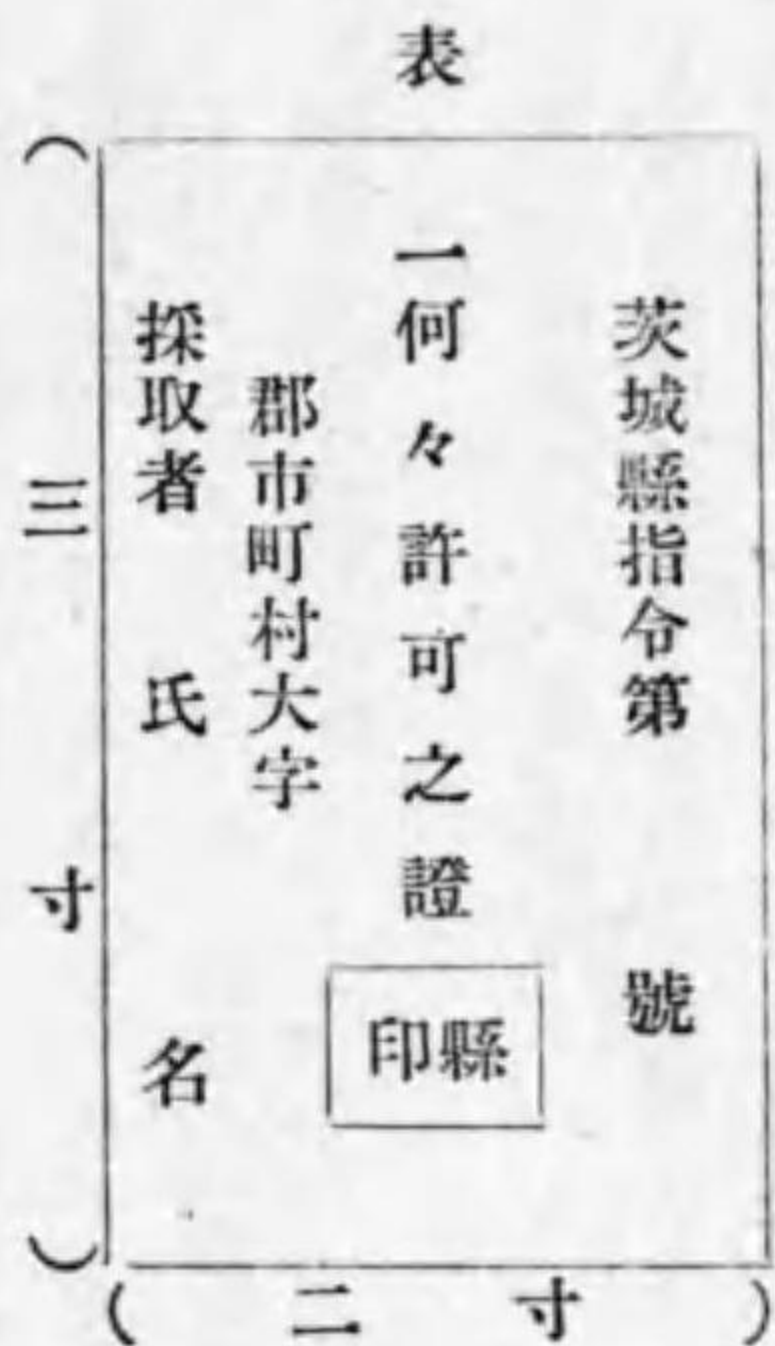 表
茨城縣指令第 號
一何々許可之證
縣印
郡市町村大字
採取者 氏 名
(三寸)
(二寸)